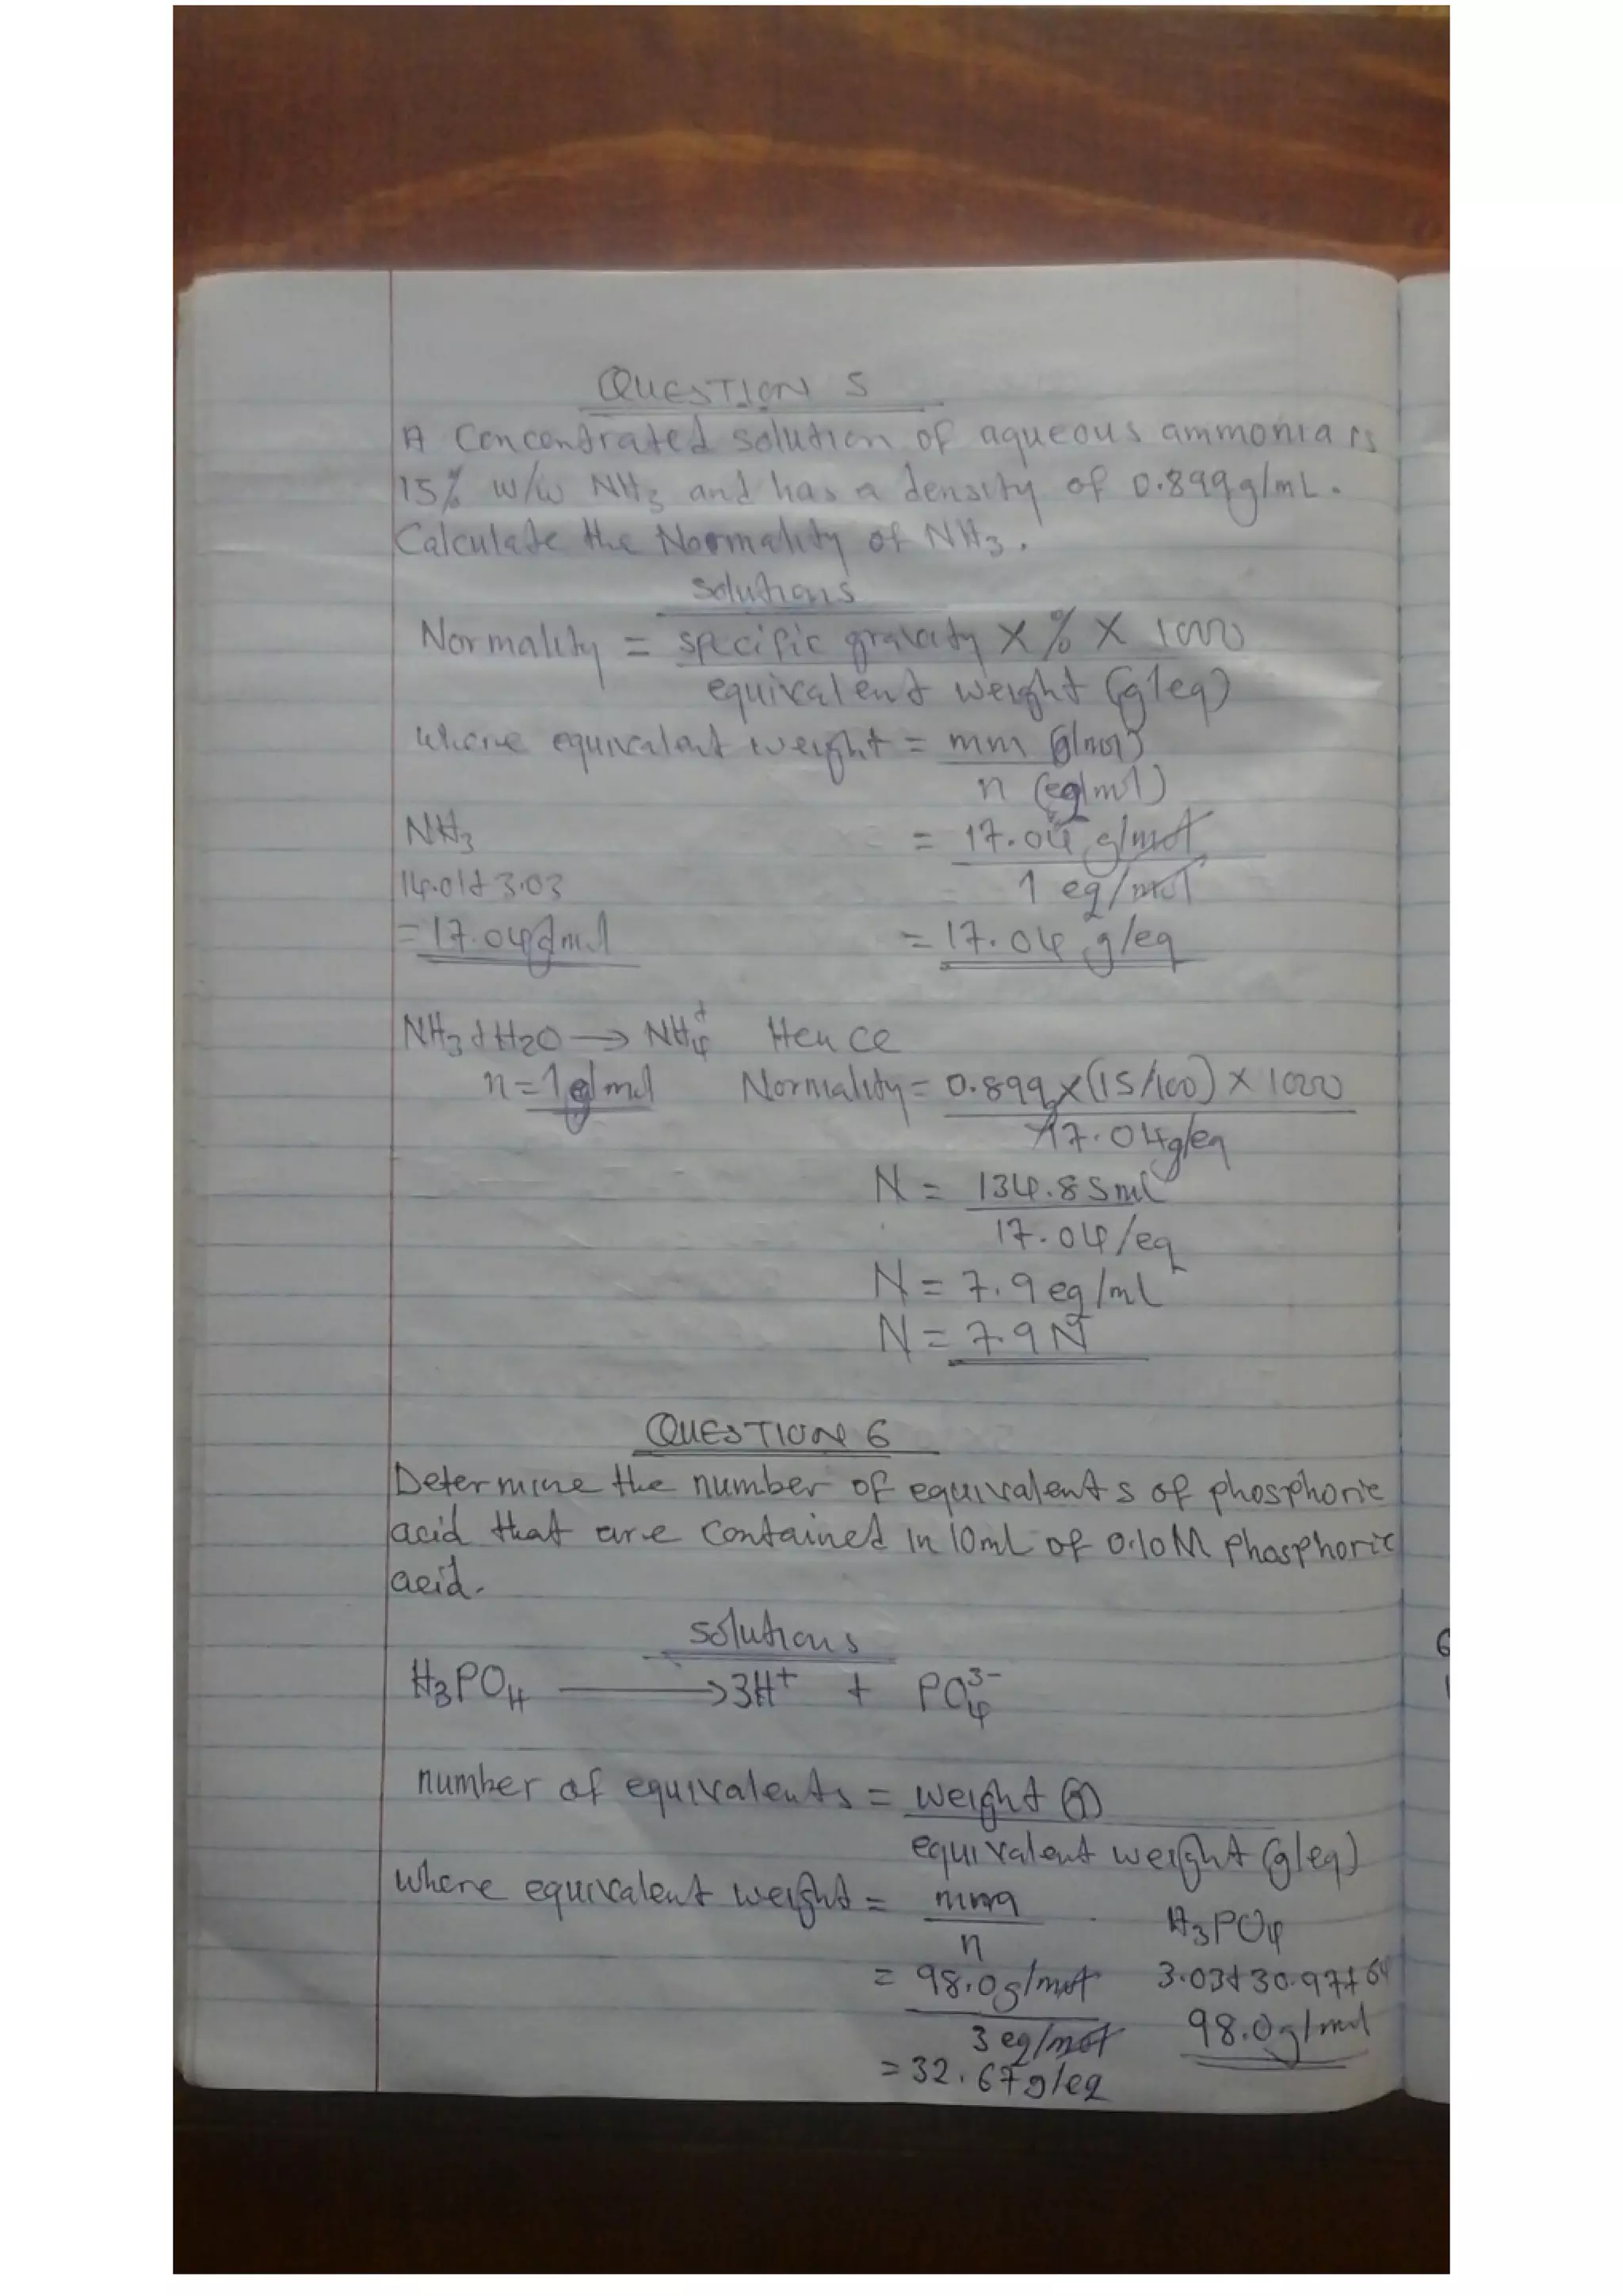 QUESTION 5
A Concentrated solution of aqueous ammonia is
15% w/w NH3 and has a density of 0.899g/mL.
Calculate the Normality of NH3.
solutions
Normality = specific gravity X % X 1000
equivalent weight (g/eq)
where equivalent weight = mm (g/mol)
n (eq/mol)
NH3 = 17.04 g/mol
14.01+3.03 1 eq/mol
= 17.04g/mol = 17.04 g/eq
NH3 + H2O → NH4+ Hence
n = 1 eq/mol Normality = 0.899 x (15/100) x 1000
17.04g/eq
N = 134.85 mL
17.04/eq
N = 7.9 eq/mL
N = 7.9 N
QUESTION 6
Determine the number of equivalents of phosphoric
acid that are contained in 10mL of 0.10M phosphoric
acid.
solutions
H3PO4 → 3H+ + PO4 3-
number of equivalents = weight (g)
equivalent weight (g/eq)
where equivalent weight = mm
n H3PO4
= 98.0g/mol 3.03+30.97+64
3 eq/mol 98.0g/mol
= 32.67g/eq